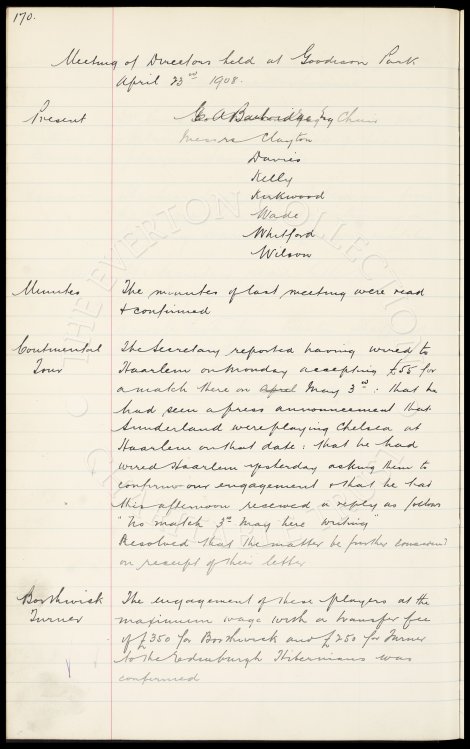 170.
Meeting of Directors held at Goodison Park
April 23rd 1908.
Present
Esq Chair
Messrs Clayton
Davies
Kelly
Kirkwood
Wade
Whitford
Wilson
Minutes The minutes of last meeting were read
& confirmed
Continental The Secretary reported having wired to
Tour Haarlem on Monday accepting £55 for
a match there on April May 3rd : that he
had seen a press announcement that
Sunderland were playing Chelsea at
Haarlem on that date : that he had
wired Haarlem yesterday asking them to
confirm our engagement & that he had
this afternoon received a reply as follows
"No match 3rd May here writing"
Resolved that the matter be further considered
on receipt of their letter
Borthwick The engagement of these players at the
Turner maximum wage with a transfer fee
of £350 for Borthwick and £250 for Turner
to the Edinburgh Hibernians was
confirmed
THE EVERTON COLLECTION